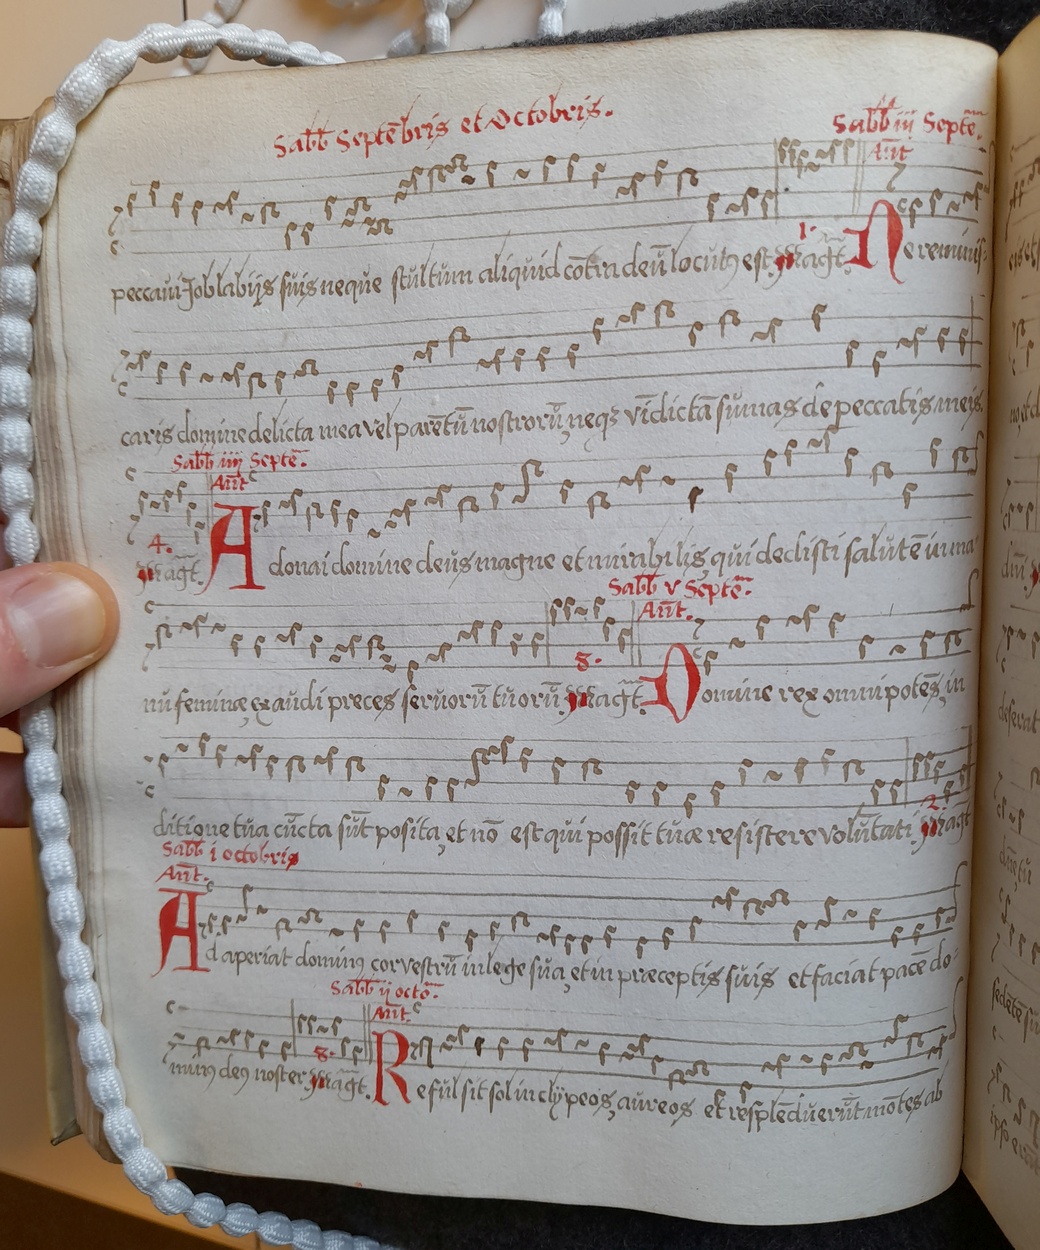 Sabb̄ Septēbris et Octobris.
Sabb̄ iij Septē.
Ant̄
peccavi Job labijs suis neque stultum aliquid cōtra deū locutꝰ est. 1. Magt̄. Ne reminis-
caris domine delicta mea vel parētū nostrorū, neqꝫ vīdictā sumas de peccatis meis.
Sabb̄ iiij Septē.
Ant̄
4. Magt̄. Adonai domine deus magne et mirabilis, qui dedisti salutē in ma-
Sabb̄ v Septē.
Ant̄.
nu feminæ, exaudi preces servorū tuorū. 8. Magt̄. Domine rex omnipotens, in
ditione tua cūcta sūt posita, et nō est qui possit tuæ resistere volūtati. 2. Magt̄
Sabb̄ i octobris
Ant̄.
Adaperiat dominꝰ cor vestrū in lege sua, et in præceptis suis et faciat pacē do-
Sabb̄ ij octo.
Ant̄.
minꝰ deꝰ noster. 8. Magt̄. Refulsit sol in clypeos, aureos et resplēduerūt mōtes ab